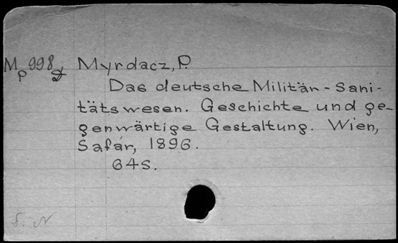 Mp998d Myrdacz, P.
Das deutsche Militär-Sani-
tätswesen. Geschichte und ge-
genwärtige Gestaltung. Wien,
Šafář, 1896.
64S.